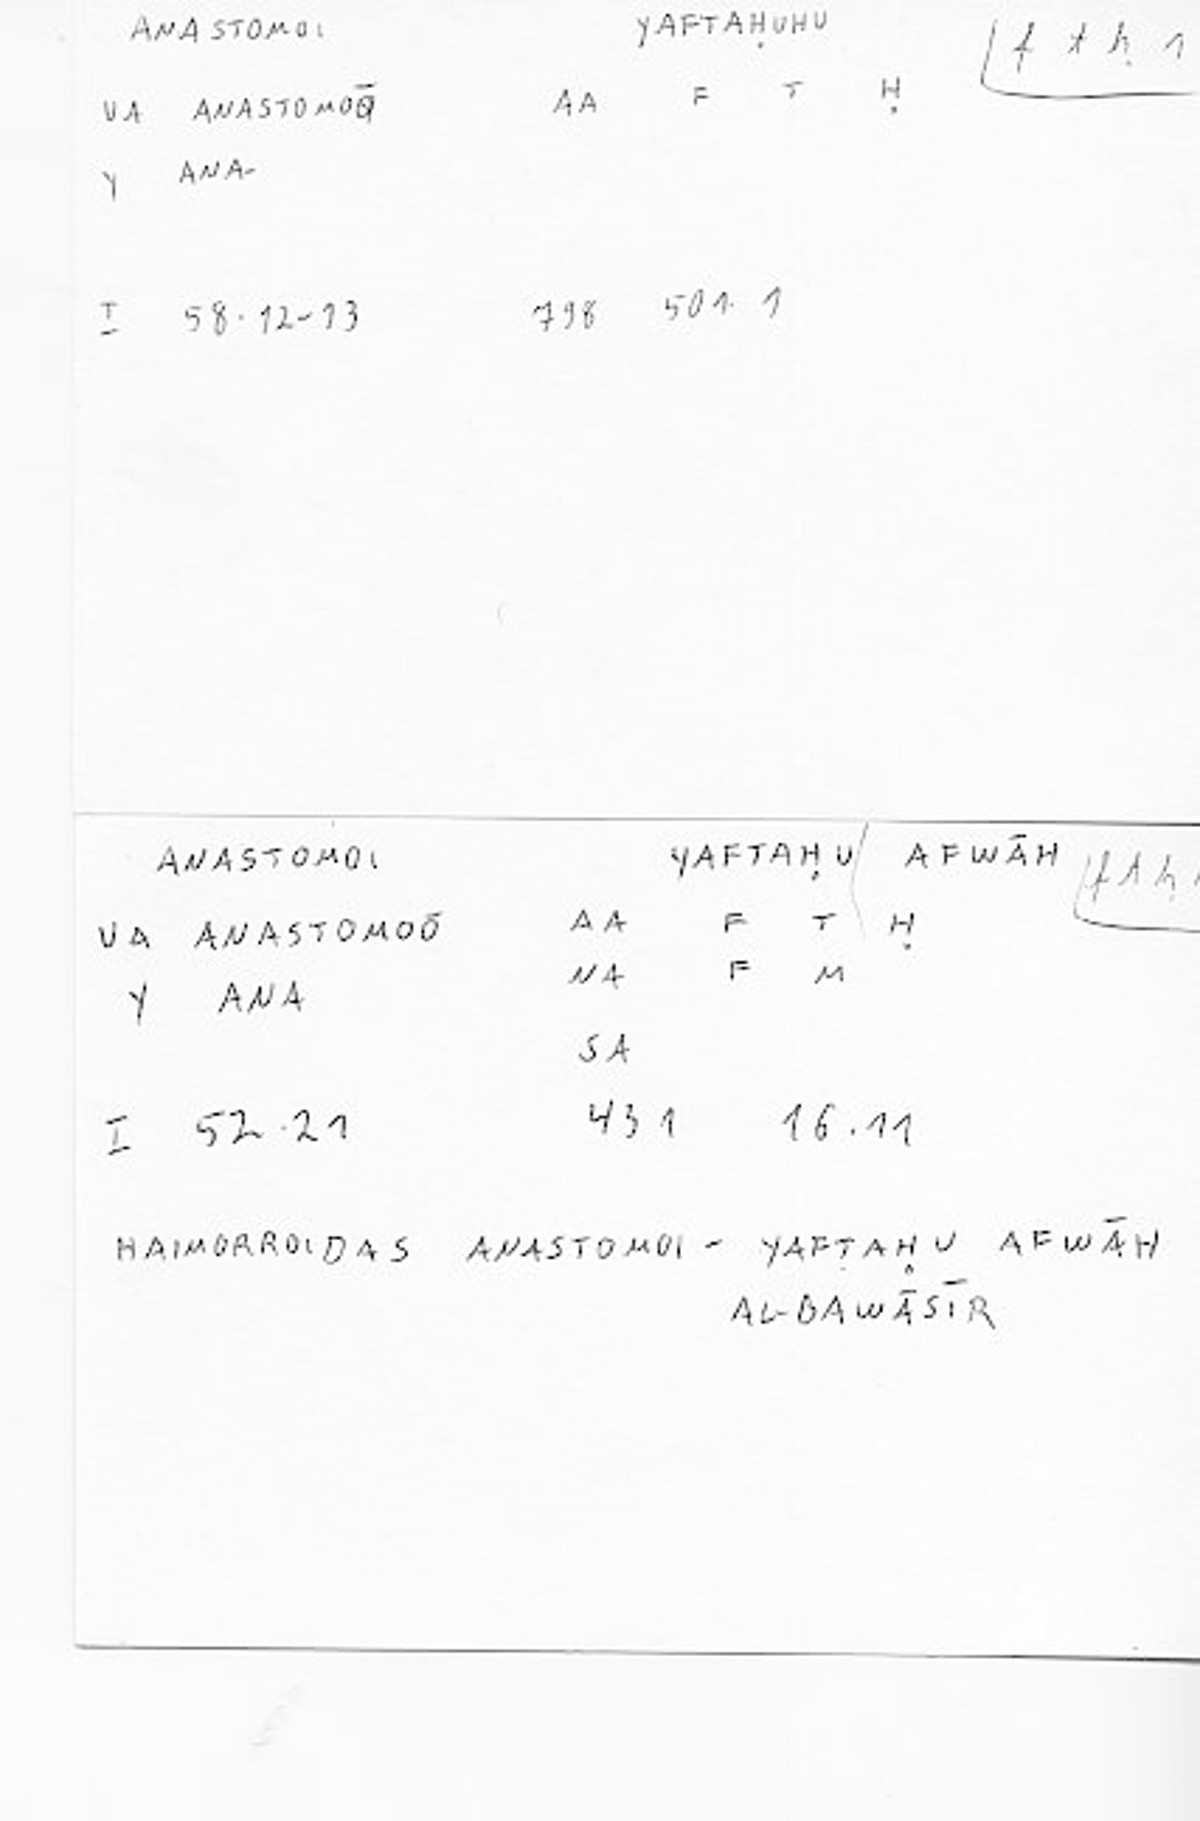 ANASTOMOI YAFTAḤUHU f t ḥ 1
VA ANASTOMOŌ AA F T Ḥ
Y ANA-
I 58.12-13 798 501.1
ANASTOMOI YAFTAḤU/ AFWĀH f t ḥ 1
VA ANASTOMOŌ AA F T Ḥ
NA F M
Y ANA
SA
I 52.21 431 16.11
HAIMORROIDAS ANASTOMOI - YAFTAḤU AFWĀH
AL-BAWĀSĪR